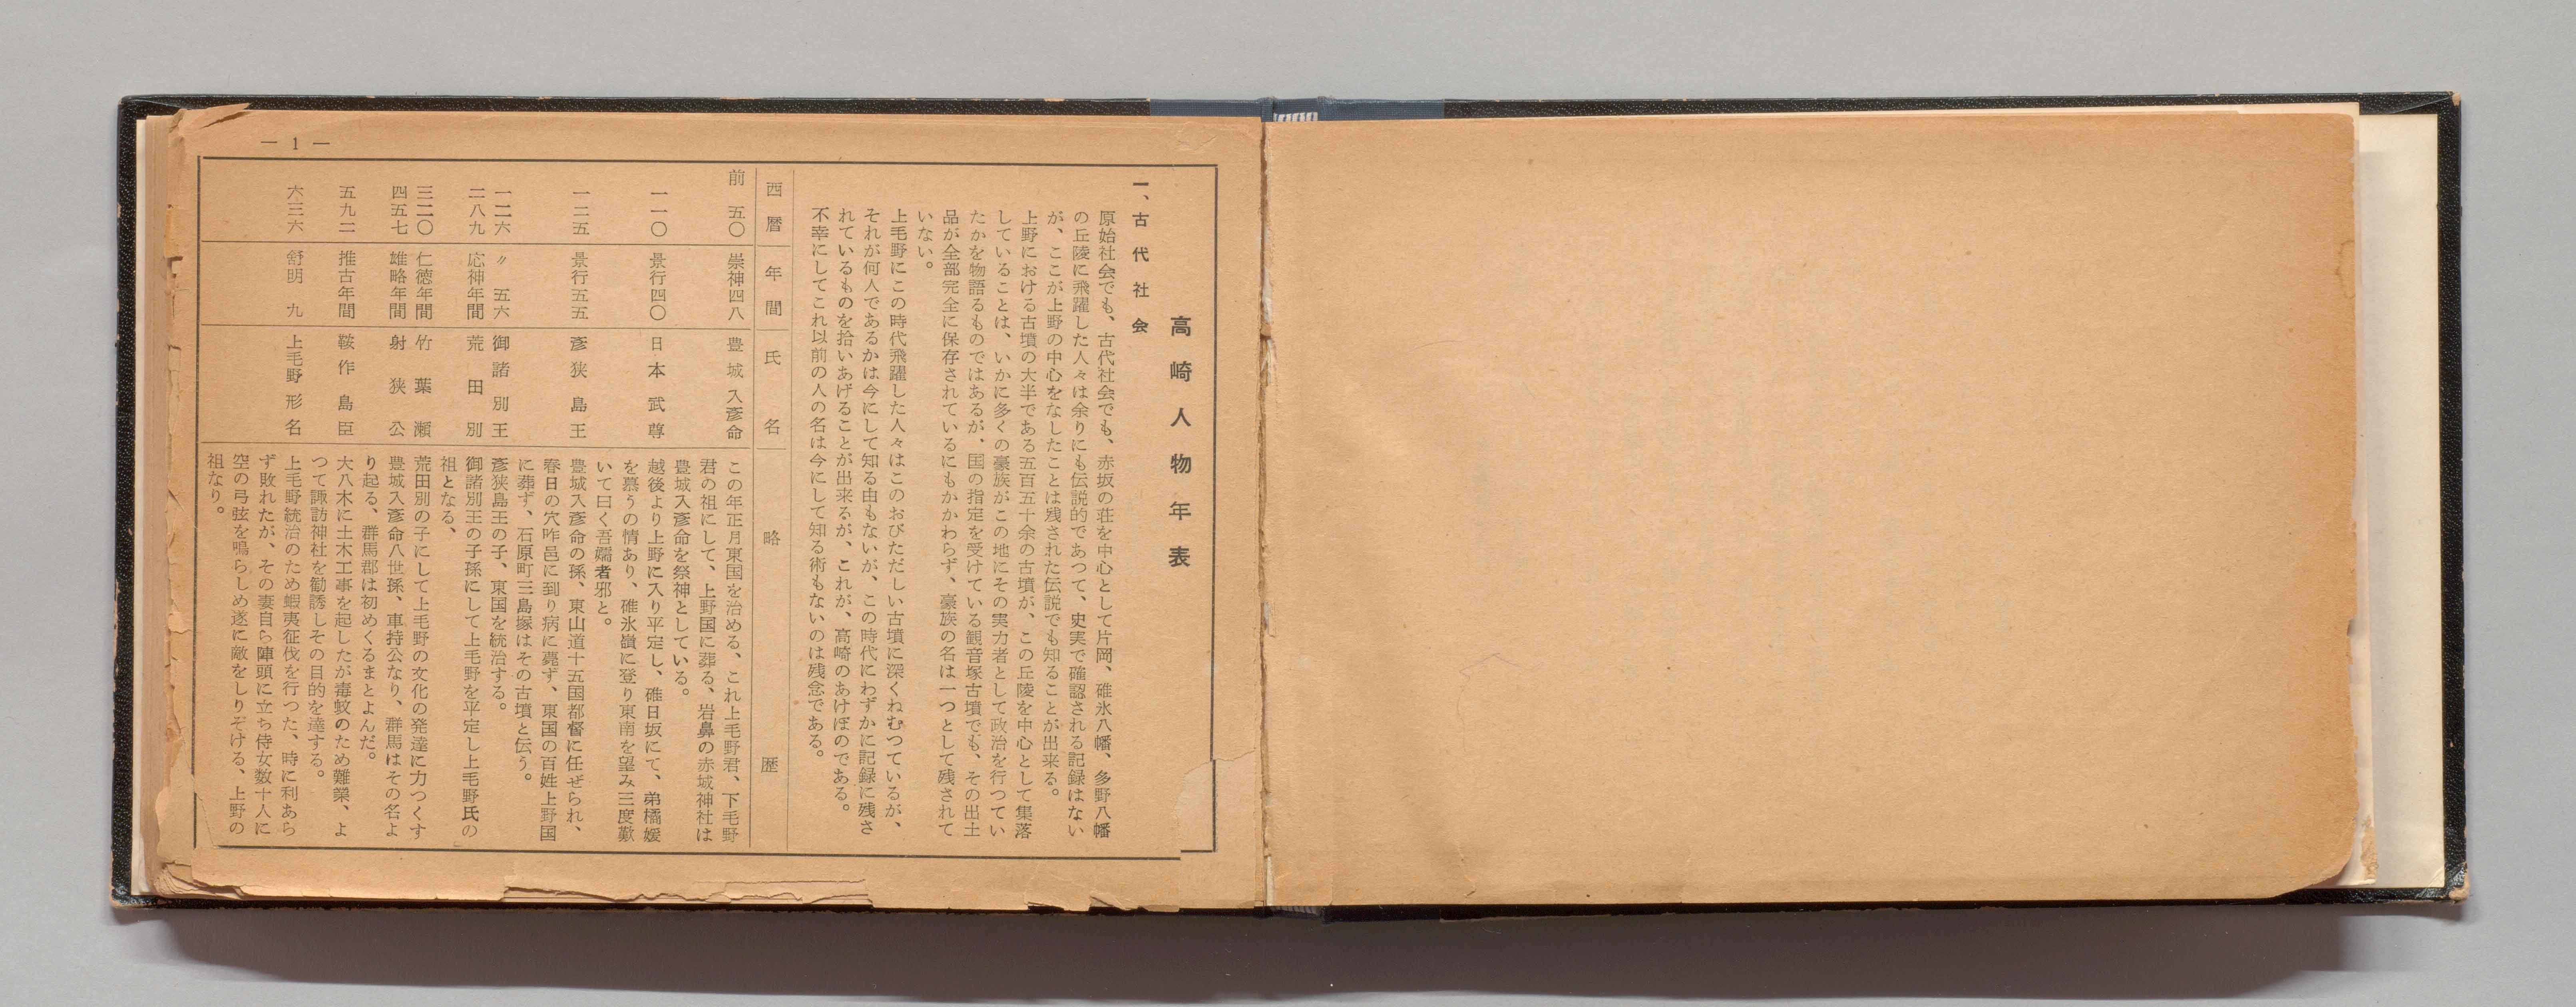 高崎人物年表
一、古代社会
原始社会でも、古代社会でも、赤坂の荘を中心として片岡、碓氷八幡、多野八幡
の丘陵に飛躍した人々は余りにも伝説的であつて、史実で確認される記録はない
が、ここが上野の中心をなしたことは残された伝説でも知ることが出来る。
上野における古墳の大半である五百五十余の古墳が、この丘陵を中心として集落
していることは、いかに多くの豪族がこの地にその実力者として政治を行つてい
たかを物語るものではあるが、国の指定を受けている観音塚古墳でも、その出土
品が全部完全に保存されているにもかかわらず、豪族の名は一つとして残されて
いない。
上毛野にこの時代飛躍した人々はこのおびただしい古墳に深くねむつているが、
それが何人であるかは今にして知る由もないが、この時代にわずかに記録に残さ
れているものを拾いあげることが出来るが、これが、高崎のあけぼのである。
不幸にしてこれ以前の人の名は今にして知る術もないのは残念である。
西暦 年間 氏名 略歴
前 五〇 崇神四八 豊城入彦命 この年正月東国を治める、これ上毛野君、下毛野
君の祖にして、上野国に葬る、岩鼻の赤城神社は
豊城入彦命を祭神としている。
一一〇 景行四〇 日本武尊 越後より上野に入り平定し、碓日坂にて、弟橘媛
を慕うの情あり、碓氷嶺に登り東南を望み三度歎
いて曰く吾嬬者邪と。
一二五 景行五五 彦狭島王 豊城入彦命の孫、東山道十五国都督に任ぜられ、
春日の穴咋邑に到り病に薨ず、東国の百姓上野国
に葬ず、石原町三島塚はその古墳と伝う。
一二六 〃 五六 御諸別王 彦狭島王の子、東国を統治する。
二八九 応神年間 荒田別 御諸別王の子孫にして上毛野を平定し上毛野氏の
祖となる、
三二〇 仁徳年間 竹葉瀬 荒田別の子にして上毛野の文化の発達に力つくす
四五七 雄略年間 射狭公 豊城入彦命八世孫、車持公なり、群馬はその名よ
り起る、群馬郡は初めくるまとよんだ。
五九二 推古年間 鞍作島臣 大八木に土木工事を起したが毒蚊のため難業、よ
つて諏訪神社を勧誘しその目的を達する。
六三六 舒明 九 上毛野形名 上毛野統治のため蝦夷征伐を行つた、時に利あら
ず敗れたが、その妻自ら陣頭に立ち侍女数十人に
空の弓弦を鳴らしめ遂に敵をしりぞける、上野の
祖なり。
— 1 —